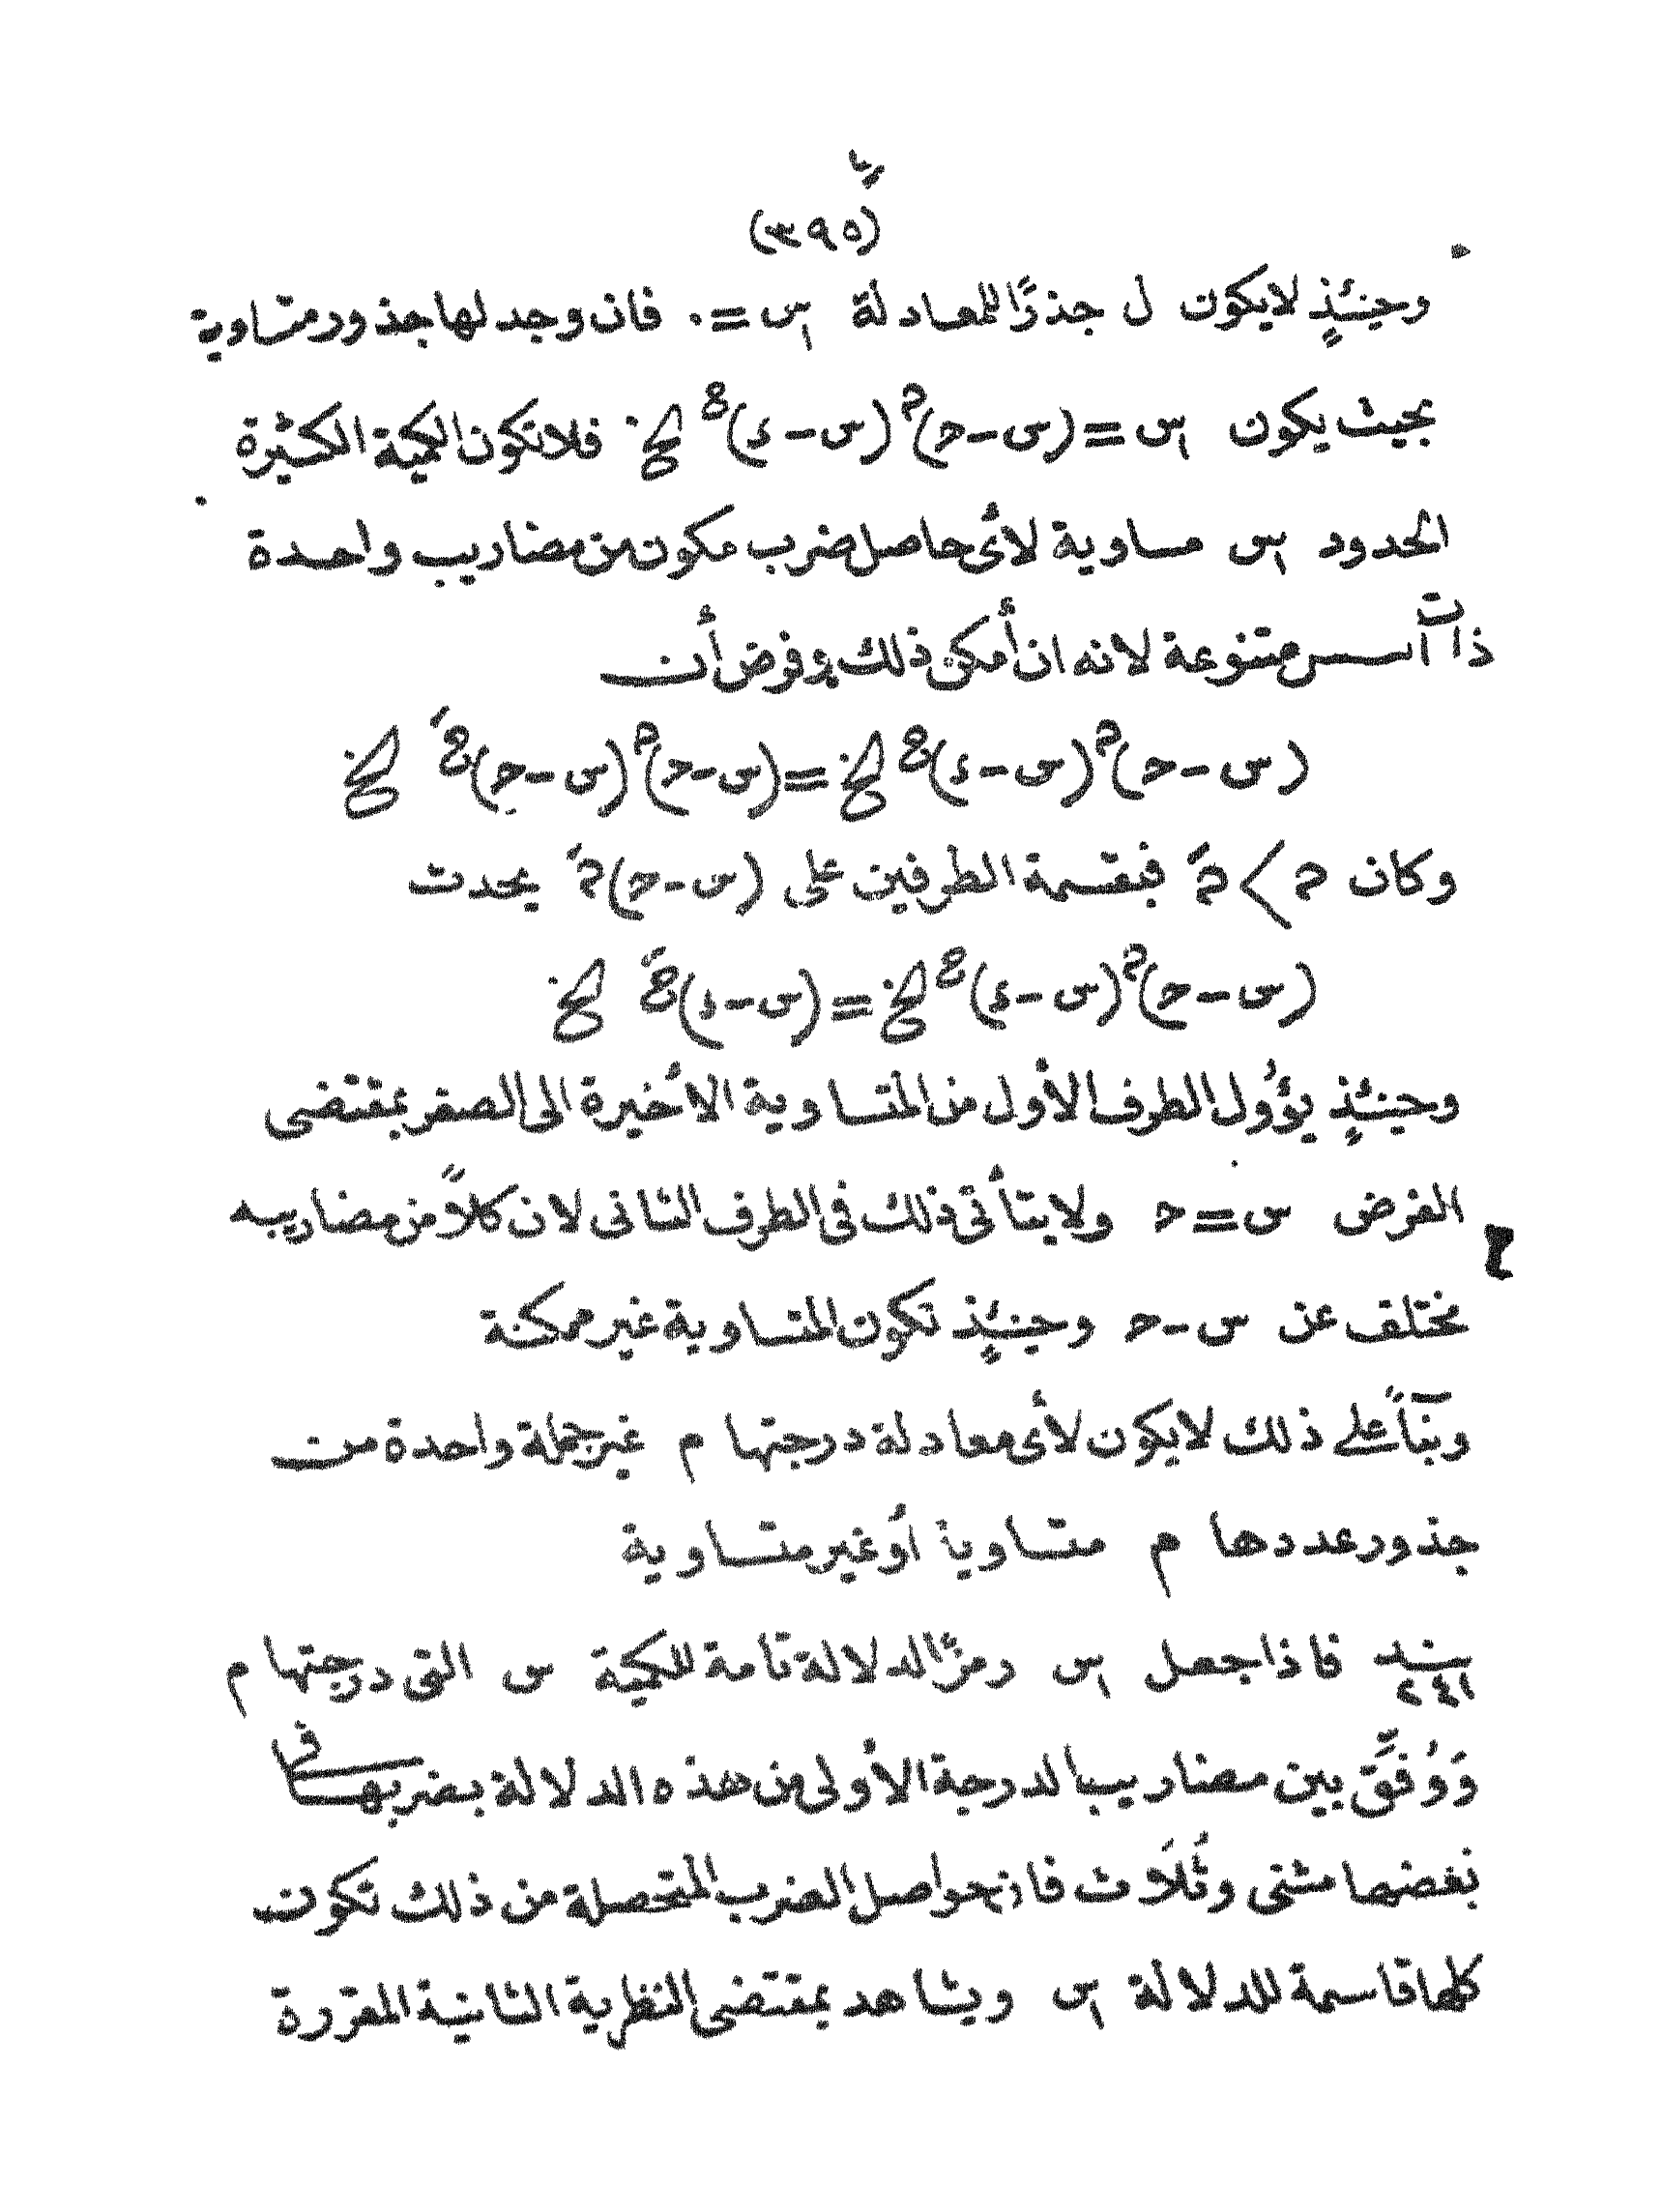 (٣٩٥)
وحينئذٍ لايكون ل جذرًا للمعادلة اس = ٠ فان وجد لها جذور متساوية
بحيث يكون اس = (س - ح)^م (س - ء)^ع الخ فلا تكون الكمية الكثيرة
الحدود اس مساوية لأى حاصل ضرب مكون من مضاريب واحدة
ذات أسس متنوعة لانه ان أمكن ذلك وفرض أن
(س - ح)^م (س - ء)^ع الخ = (س - ح)^مَ (س - ح)^عَ الخ
وكان م > مَ فبقسمة الطرفين على (س - ح)^مَ يحدث
(س - ح)^م (س - ء)^ع الخ = (س - ء)^عَ الخ
وحينئذٍ يؤُول الطرف الأول من المتساوية الأخيرة الى الصفر بمقتضى
الفرض س = ح ولايتأتى ذلك فى الطرف الثانى لان كلاً من مضاريبه
مختلف عن س - ح وحينئذٍ تكون المتساوية غير ممكنة
وبنآءً على ذلك لايكون لأى معادلة درجتها م غير جملة واحدة من
جذور عددها م متساوية أو غير متساوية
بند ٢٤١ فاذا جعل اس رمزًا لدلالة تامة للكمية س التى درجتها م
وَوُفِّقَ بين مضاريب الدرجة الأولى من هذه الدلالة بضربها فى
بعضها مثنى وثُلَاث فان حواصل الضرب المتحصلة من ذلك تكون
كلها قاسمة للدلالة اس ويشاهد بمقتضى النظرية الثانية المقررة